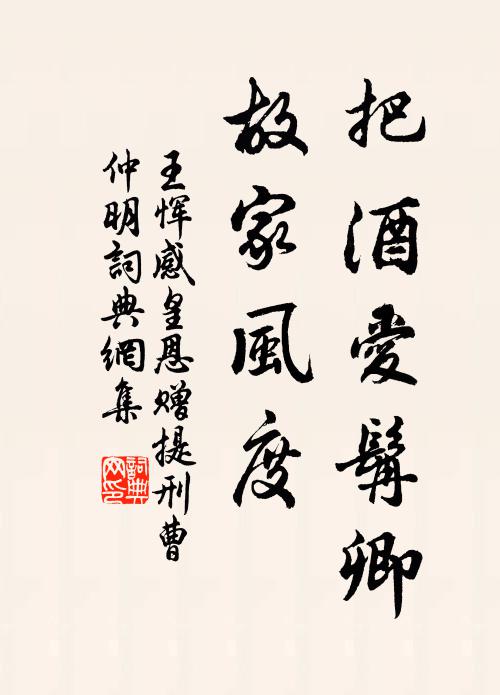 把酒爱髯卿
故家風度
王恽感皇恩赠提刑曹
仲明詞典網集
詞典
网印